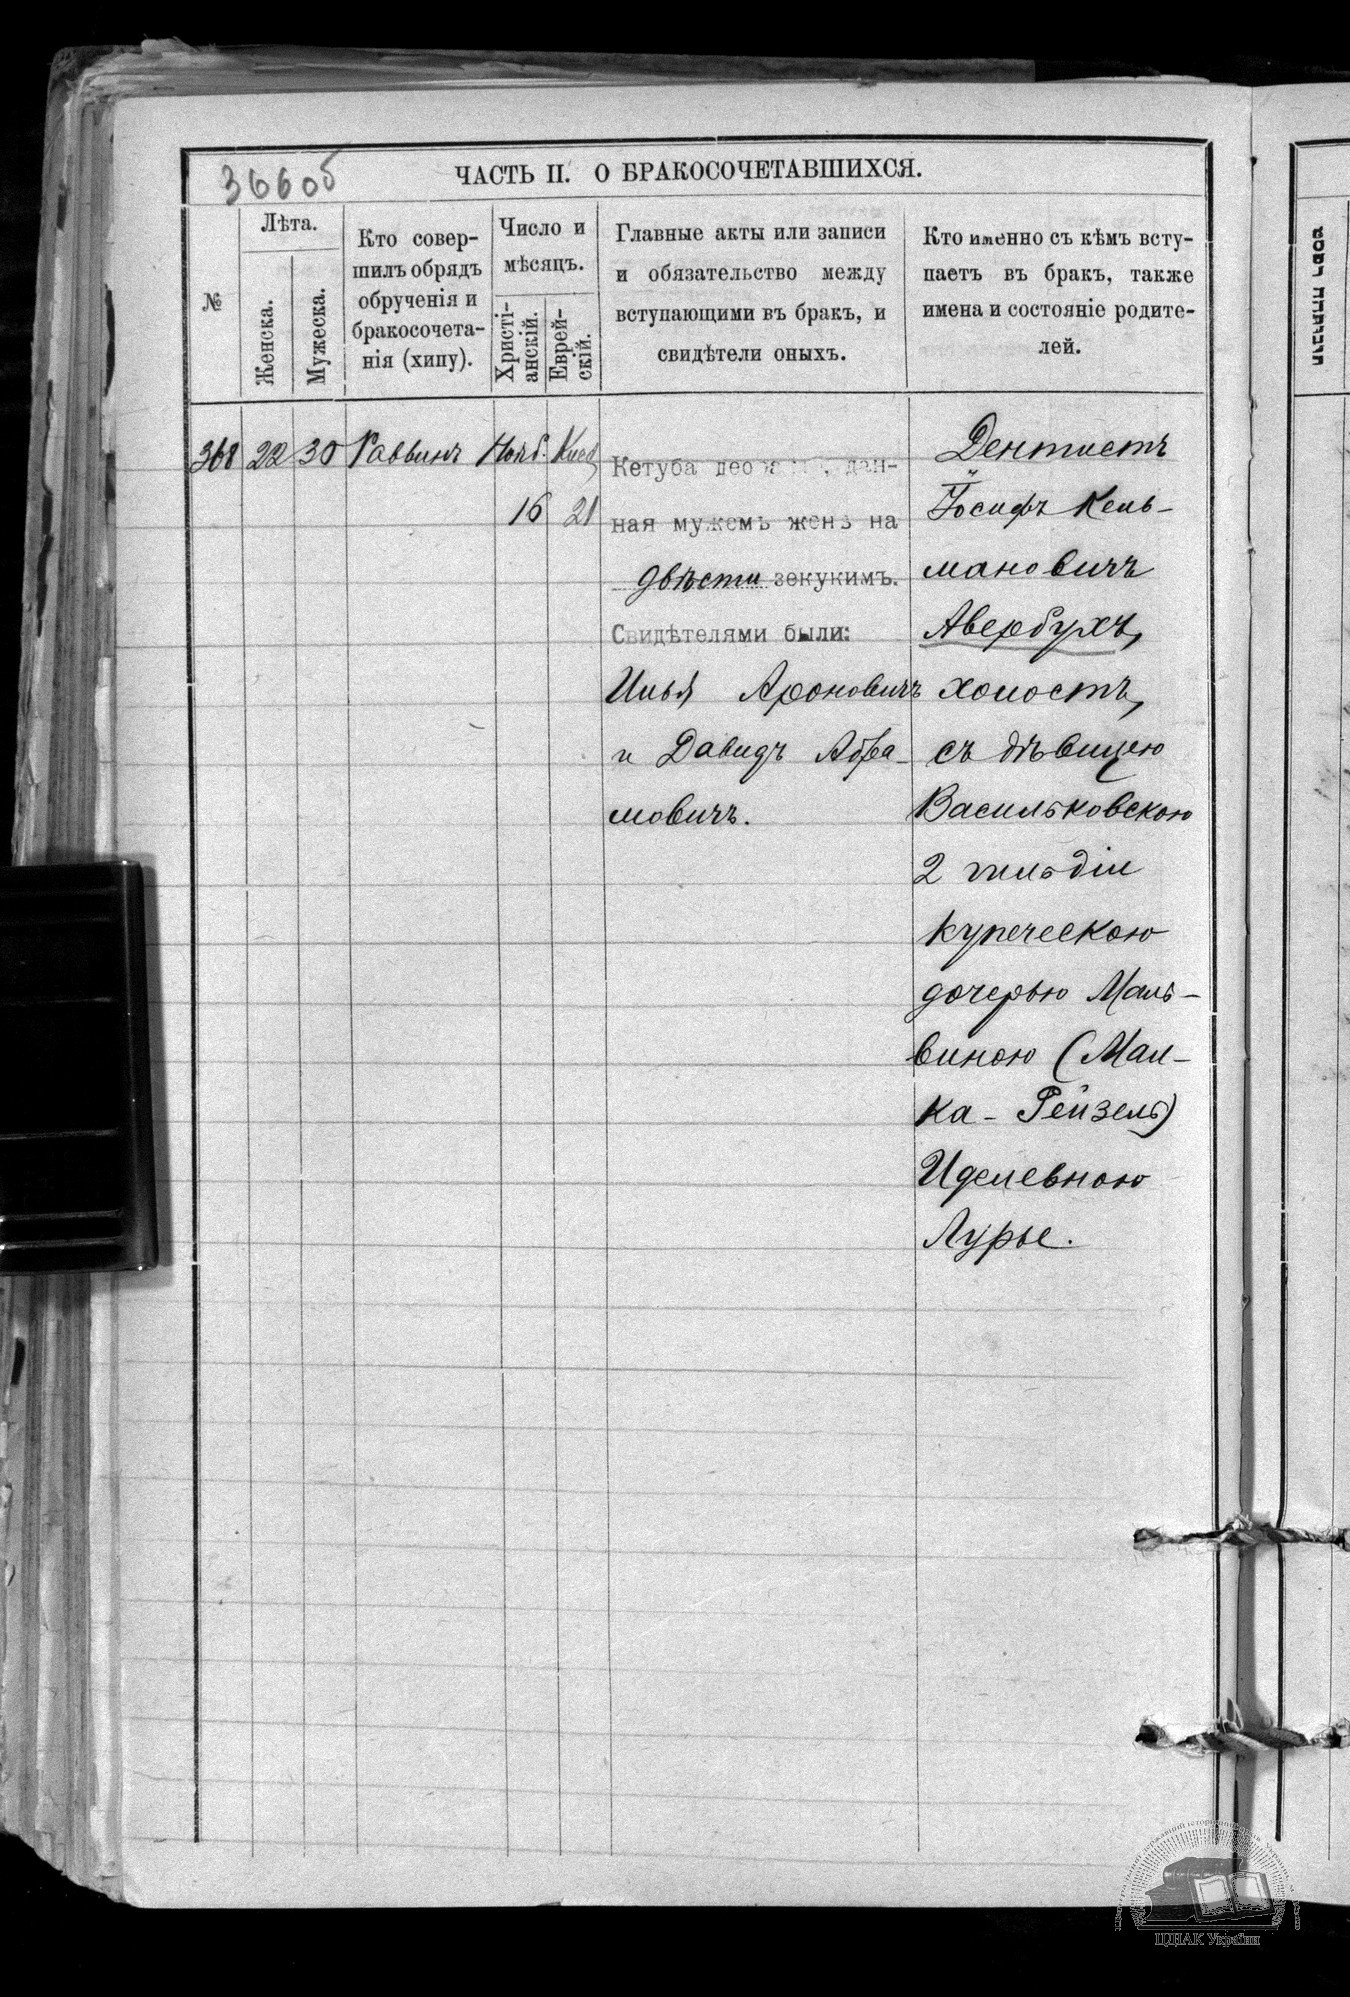 366об
ЧАСТЬ II. О БРАКОСОЧЕТАВШИХСЯ.
№
Лѣта.
Женска.
Мужеска.
Кто совер-
шилъ обрядъ
обрученія и
бракосочета-
нія (хипу).
Число и
мѣсяцъ.
Христі-
анскій.
Еврей-
скій.
Главные акты или записи
и обязательство между
вступающими въ бракъ, и
свидѣтели оныхъ.
Кто именно съ кѣмъ всту-
паетъ въ бракъ, также
имена и состояніе родите-
лей.
368 22 30 Раввинъ Нояб. Кисл
16 21
Кетуба деорайта, дан-
ная мужемъ женѣ на
двѣсти зекукимъ.
Свидѣтелями были:
Илья Ароновичъ
и Давидъ Абра-
мовичъ.
Дентистъ
Іосифъ Кель-
мановичъ
Авербухъ,
холостъ,
съ дѣвицею
Васильковскою
2 гильдіи
купеческою
дочерью Маль-
виною (Мал-
ка-Рейзель)
Иделевною
Лурье.
ЦДІАК України